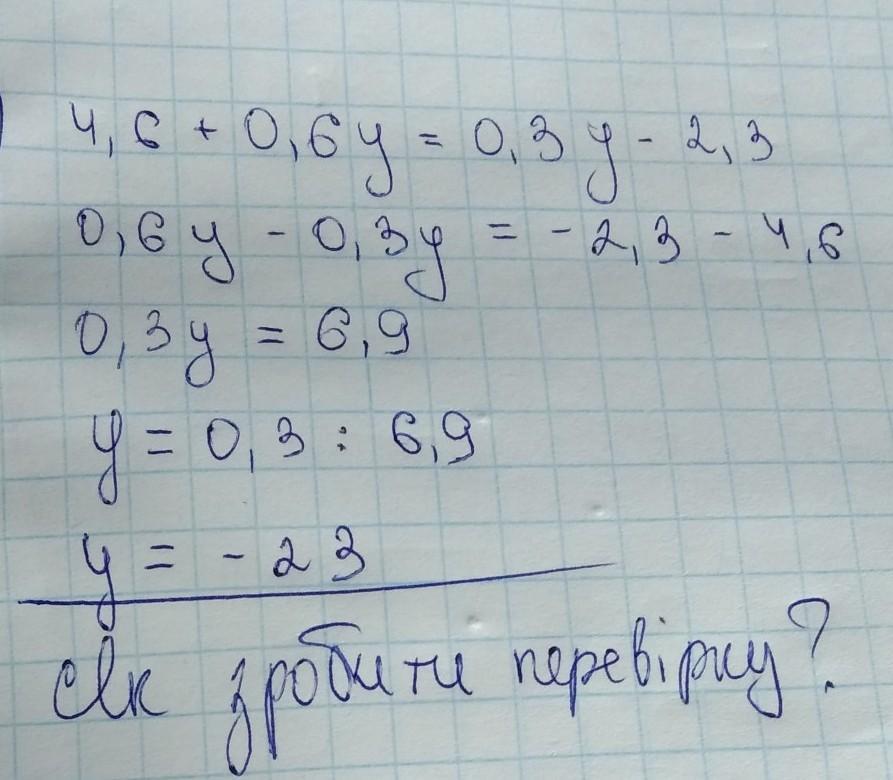 4,6 + 0,6y = 0,3y - 2,3
0,6y - 0,3y = -2,3 - 4,6
0,3y = 6,9
y = 0,3 : 6,9
y = -23
Як зробити перевірку?